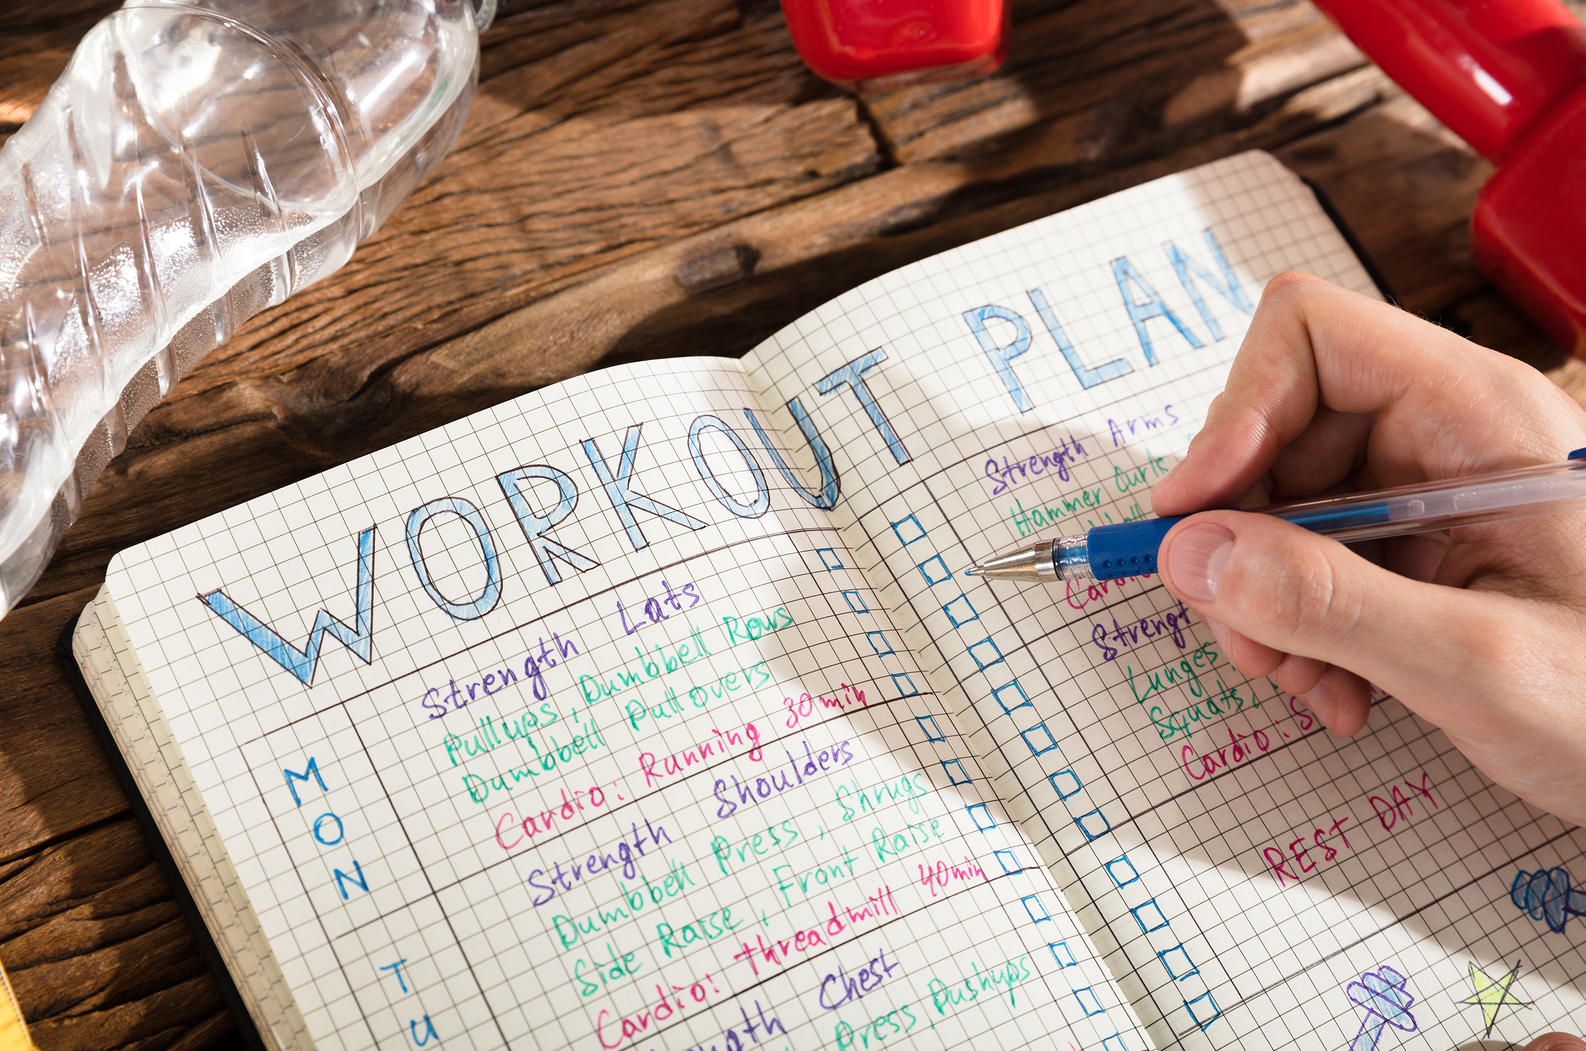 WORKOUT PLAN
MON
Strength Lats
Pullups, Dumbbell Rows
Dumbbell Pullovers
Cardio: Running 30 min
TU
Strength Shoulders
Dumbbell Press, Shrugs
Side Raise, Front Raise
Cardio: threadmill 40 min
Chest
Press Pushups
Strength Arms
Hammer Curls
Lunges
Squats,
Cardio:
REST DAY